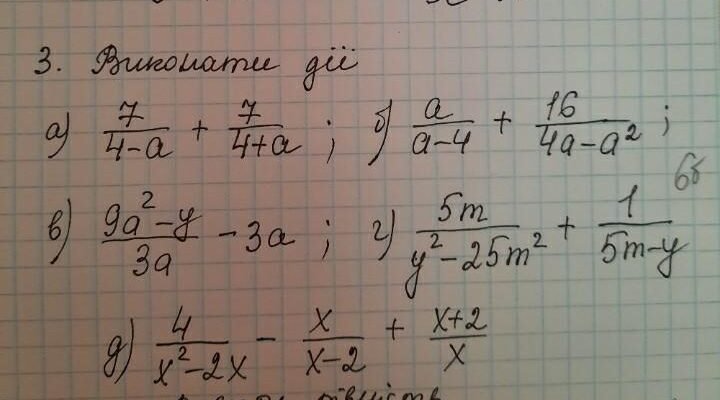 3. Виконати дії
а) 7/(4-a) + 7/(4+a) ; б) a/(a-4) + 16/(4a-a²) ;
в) (9a²-y)/(3a) - 3a ; г) 5m/(y²-25m²) + 1/(5m-y)
6б
д) 4/(x²-2x) - x/(x-2) + (x+2)/x